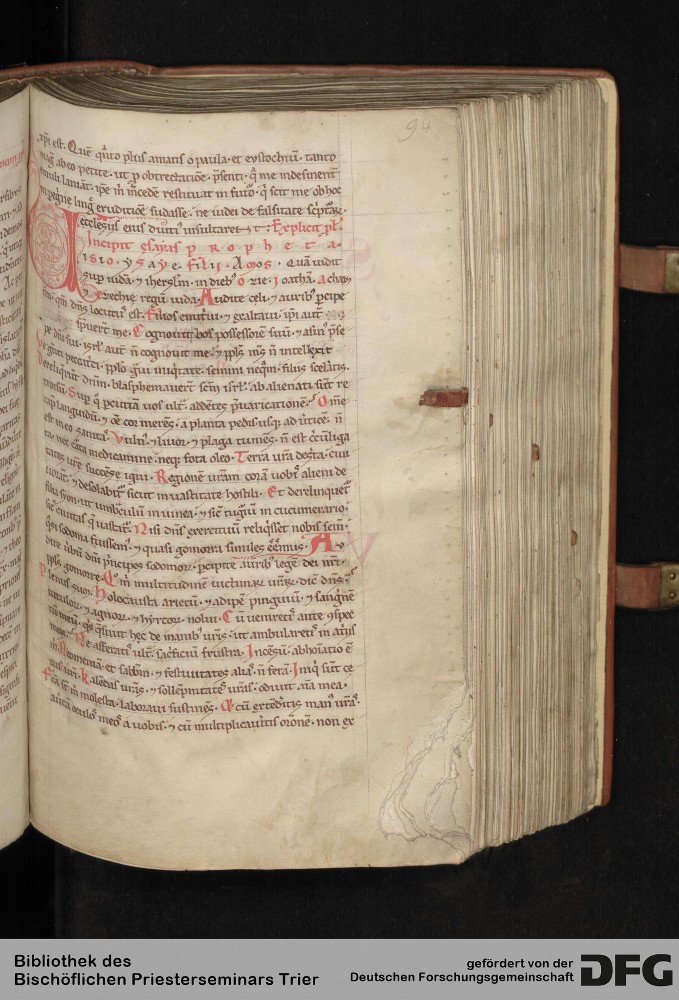 94
xp̄i est. Quē q̄nto plus amatis o paula et eustochiū. tanto
mag̉ ab eo petite. ut ꝓ obtrectatiōe p̄senti. q̄ me indesinent̉
emuli laniāt. ipse m̄ m̄cedē restituat in futuro. q̄ scit me ob hoc
in pegrine ling̉ eruditiōe sudasse. ne iudei de falsitate sc̄ptar̄
ecclesiis eius diuti insultarēt. Explicit ꝓl.
Incipit esaias propheta.
isio. ysaye. filii. Amos. Quā uidit
sup iudā. ⁊ ihersl̄m. in dieb̉ ozie. ioathā. achaz
⁊ ezechie regū iuda. Audite celi. ⁊ aurib̉ p̄cipe
qm̄ dn̄s locutus est. Filios enutriui. ⁊ exaltaui. ip̄i aut̄
spreuert̄ me. Cognouit bos possessorē suū. ⁊ asin̉ p̄se
pe dn̄i sui. isrl̄ aut̄ n̄ cognouit me. ⁊ ppl̄s m̄s n̄ intellexit
Ve genti peccat̄ci. pplo g̉ui iniqitate. semini neqm̄. filiis scelatis.
dereliquert̄ dn̄m. blasphemauert̄ sc̄m isrl̄. ab alienati sūt re
trorsū. Sup q̄ pcutiā uos ult̄. addētes p̄uaricationē. Om̄e
cap̄ languidū. ⁊ oē cor merēs. a planta pedis usq̉ ad u̇ticē. n̄
est in eo sanitas. Vuln̉ ⁊ liuor. ⁊ plaga tumēs. n̄ est circūliga
ta. nec c̄ata medicamine. neq̉ fota oleo. Terra ur̄a des̄ta. ciui
tates ur̄e succēse igni. Regionē ur̄am corā uob̄ alieni de
uorāt. ⁊ desolabit̉ sicut in uastitate hostili. Et derelinquet̉
filia syon. ut umbculū in uinea. ⁊ sic̄ tuguriū in cucumerario.
sic̄ ciuitas q̄ uastat̉. Nisi dn̄s exercituū reliq̄sset nobis sem̄.
q̄si sodoma fuissem̉. ⁊ quasi gomorra similes eēmus. Au
dite ūbū dn̄i p̄ncipes sodomor̄. pcipite aurib̉ legē dei n̄ri.
ppl̄s gomorre. Q̉ m̄ multitudinē uictimar̄ ur̄ar̄. dic̄ dn̄s.
plenus suɔ. Holocausta arietū. ⁊ adipē pinguiū. ⁊ sanḡnē
uitulor̄ ⁊ agnor̄. ⁊ hyrcor̄. nolui. Cū ueniretis ante ɔspec
tū meū. q̉s q̄siuit hec de manib̉ ur̄is. ut ambularetis in atriis
meis. Ne afferatis ult̄ sacficiū frustra. Incēsū. abhoīatio ē
m̄. Neomeniā. et sabb̄m. ⁊ festiuitates alias n̄ ferā. Iniq̄ sūt ce
tus ur̄i. Kalēdas ur̄as. ⁊ sollēpnitates ur̄as. odiuit aīa mea.
Fc̄a sūt m̄ molesta. laboraui sustinēs. Et cū extēditis man̉ ur̄as.
au̇tā oculos meos a uobis. ⁊ cū multiplicau̇itis orōnē. non ex
Bibliothek des
Bischöflichen Priesterseminars Trier
gefördert von der
Deutschen Forschungsgemeinschaft
DFG